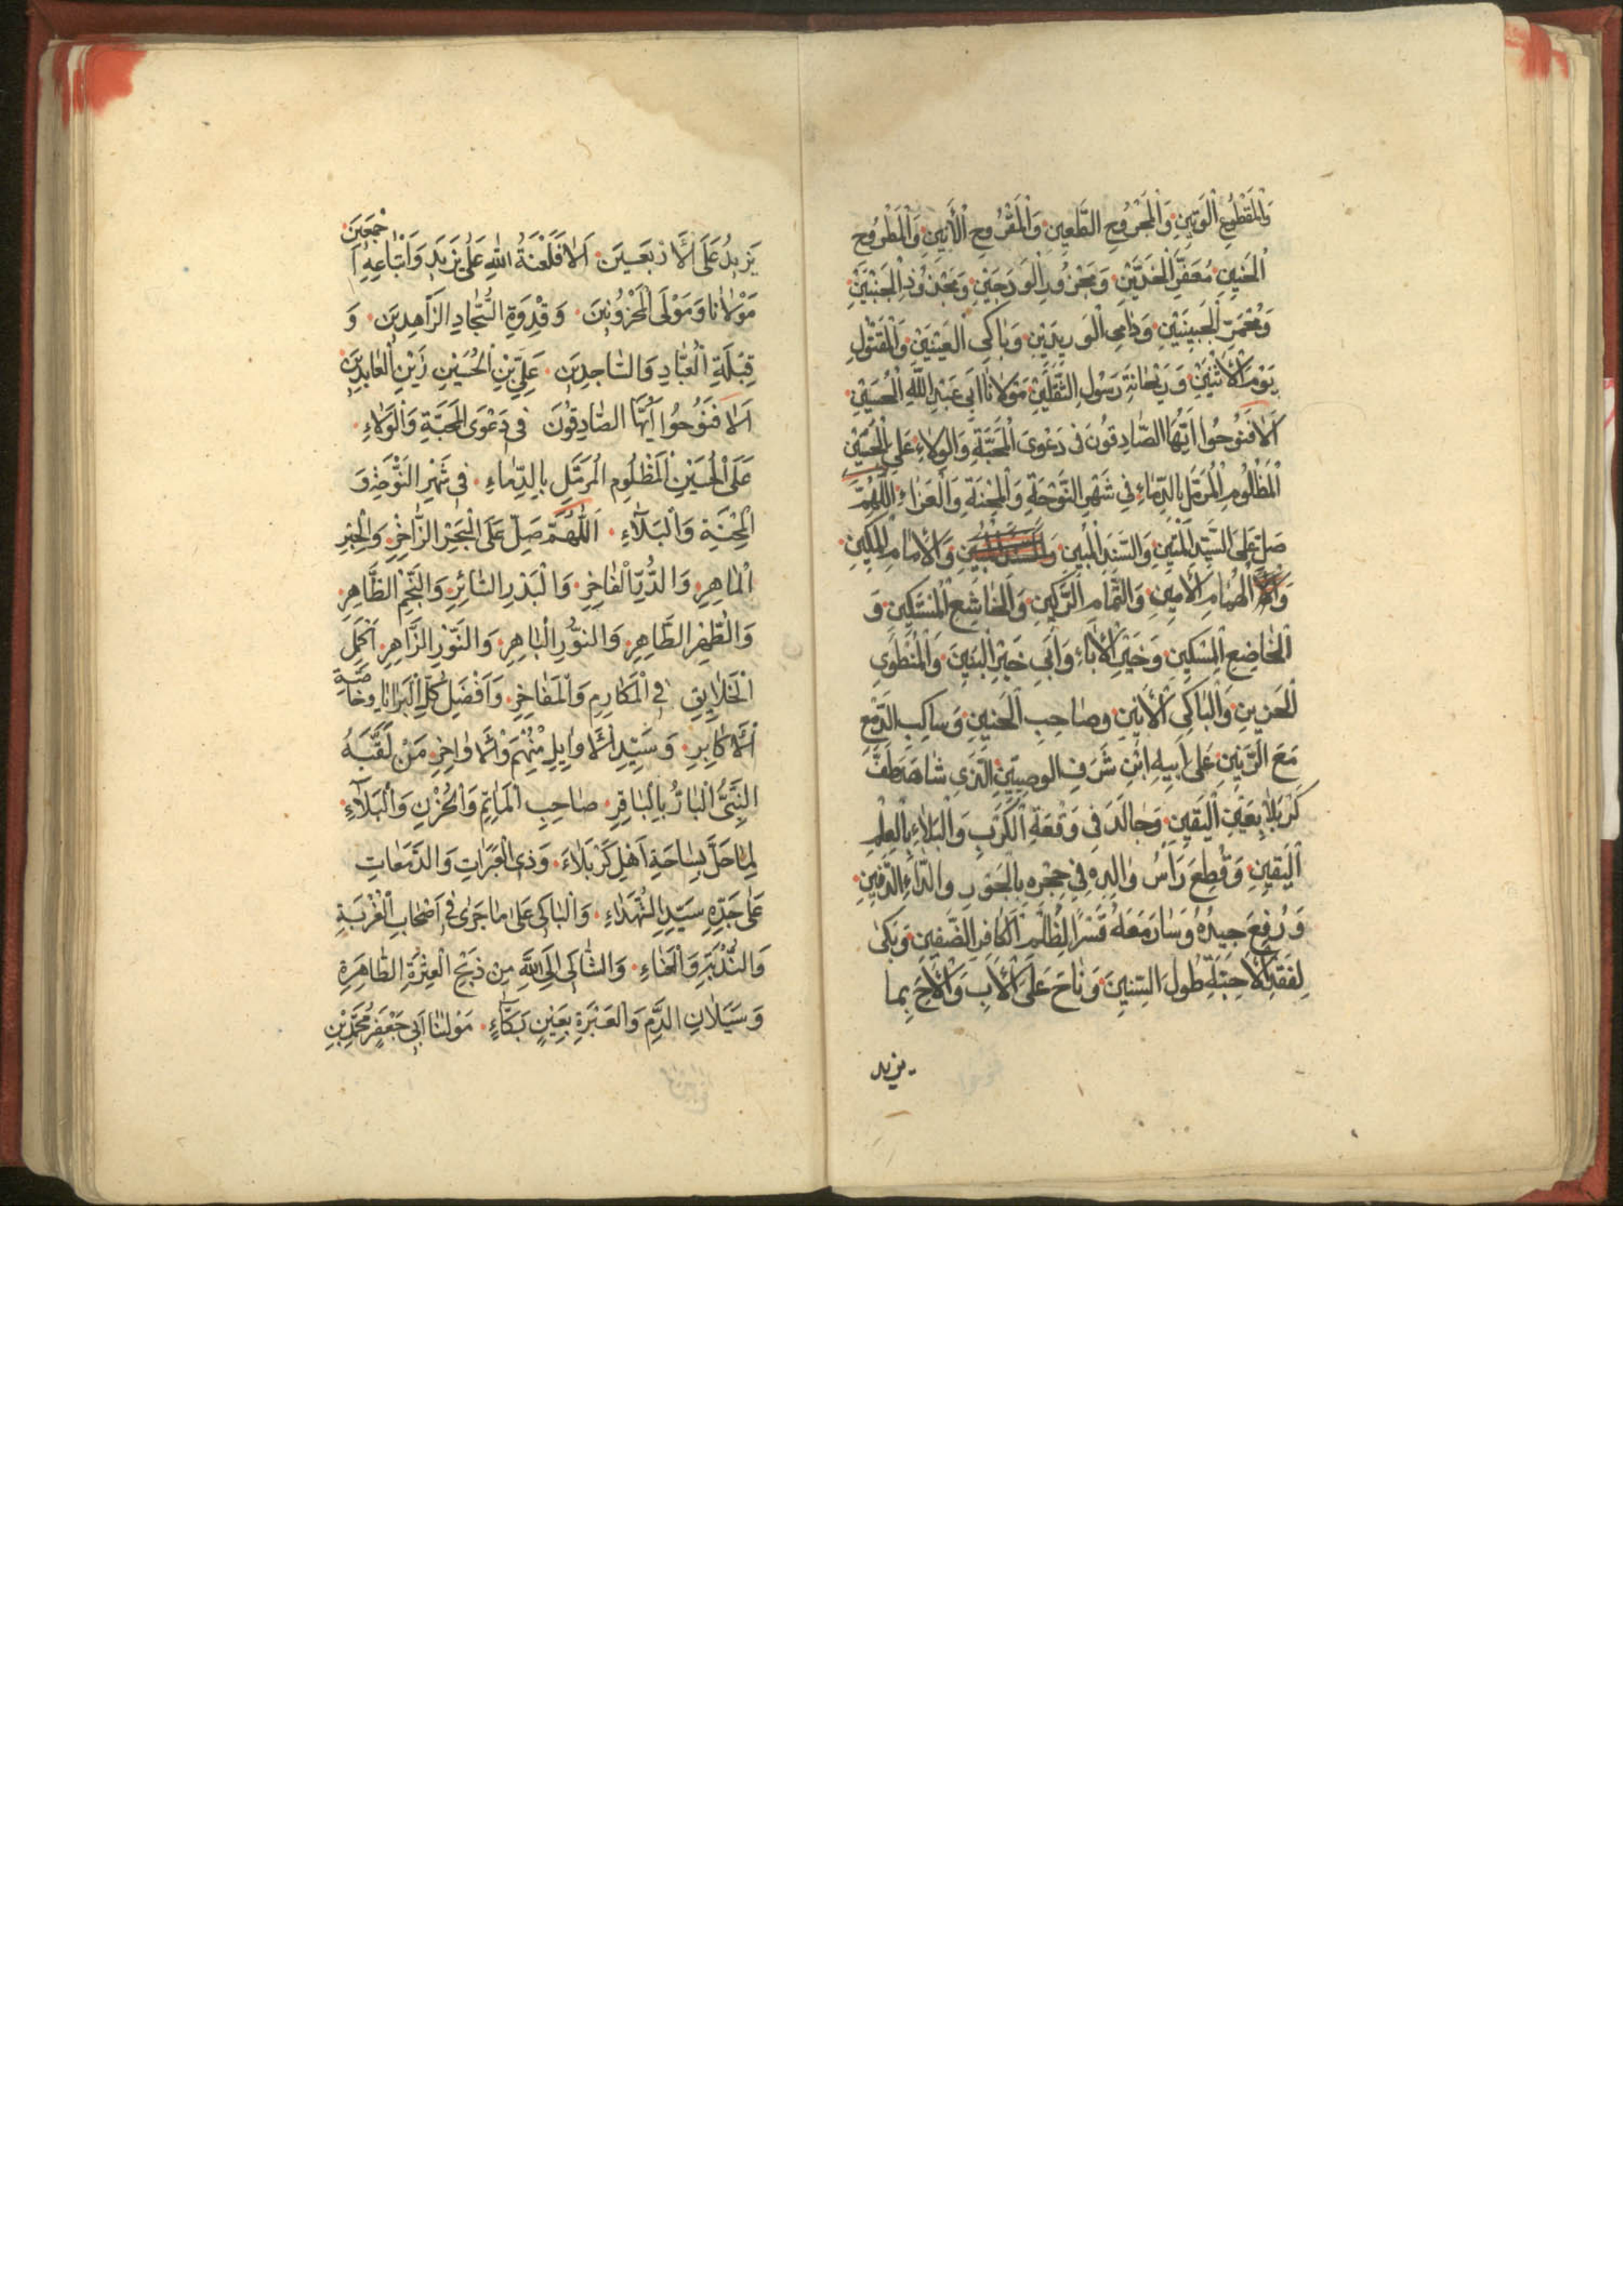 وَالْمَقْطُوعِ الْوَتِينِ وَالْمَجْرُوحِ الطَّعِينِ وَالْمَقْرُوحِ الْأَنِينِ وَالْمَطْرُوحِ
الْحَنِينِ مُعَفَّرِ الْخَدَّيْنِ وَمَحْزُوزِ الْوَدَجَيْنِ الْجَنْبَيْنِ
الْجَبِينَيْنِ وَدَامِى الْوَرِيدَيْنِ وَبَاكِى الْعَيْنَيْنِ وَالْمَقْتُولِ
يَوْمَ الْأَثْنَيْنِ وَرَيْحَانَةِ رَسُولِ الثَّقَلَيْنِ مَوْلَانَا اَبِى عَبْدِ اللَّهِ الْحُسَيْنِ
اَلَا فَنُوحُوا اَيُّهَا الصَّادِقُونَ فِى دَعْوَى الْمَحَبَّةِ وَالْوَلَاءِ عَلَى الْحُسَيْنِ
الْمَظْلُومِ الْمُرَمَّلِ بِالدِّمَاءِ فِى شَهْرِ النَّوْحَةِ وَالْمِحْنَةِ وَالْعَزَاءِ اَللّٰهُمَّ
صَلِّ عَلَى السَّيِّدِ الْمَتِينِ وَالسَّنَدِ الْمُبِينِ وَالْاِمَامِ الْمَكِينِ
الْهُمَامِ الْأَمِينِ وَالْخَاشِعِ الْمُسْتَكِينِ وَ
الْخَاضِعِ الْمِسْكِينِ وَخَيْرِ الْآبَاءِ وَاَبِى خَيْرِ الْبَنِينَ وَالْمُنْطَوِى
الْحَزِينِ وَالْبَاكِى الْأَنِينِ وَصَاحِبِ الْحَنِينِ وَسَاكِبِ الدَّمْعِ
مَعَ الرَّنِينِ عَلَى اَبِيهِ ابْنِ شَرَفِ الْوَصِيِّينَ الَّذِى شَاهَدَ طَفَّ
كَرْبَلَا بِعَيْنِ الْيَقِينِ وَجَالَدَ فِى وَقْعَةِ الْكَرْبِ وَالْبَلَاءِ بِالْعِلْمِ
الْيَقِينِ وَقُطِعَ رَأْسُ وَالِدِهِ فِى حِجْرِهِ بِالْجَوْرِ وَالدَّاءِ الدَّفِينِ
وَرُفِعَ جِيدُهُ وَسَارَ مَعَهُ قَسْرًا لِظُلْمِ الْكَافِرِ وَبَكَى
لِفَقْدِ الْأَحِبَّةِ طُولَ السِّنِينَ وَنَاحَ عَلَى الْأَبِ وَالْأَخِ بِمَا
يزيد
يَزِيدُ عَلَى الْأَرْبَعِينَ اَلَا فَلَعْنَةُ اللّٰهِ عَلَى يَزِيدَ وَاَتْبَاعِهِ اَجْمَعِينَ
مَوْلَانَا وَمَوْلَى الْمَحْزُونِينَ وَقِدْوَةِ السُّجَّادِ الزَّاهِدِينَ وَ
قِبْلَةِ الْعُبَّادِ وَالسَّاجِدِينَ عَلِيِّ بْنِ الْحُسَيْنِ زَيْنِ الْعَابِدِينَ
اَلَا فَنُوحُوا اَيُّهَا الصَّادِقُونَ فِى دَعْوَى الْمَحَبَّةِ وَالْوَلَاءِ
عَلَى الْحُسَيْنِ الْمَظْلُومِ الْمُرَمَّلِ بِالدِّمَاءِ فِى شَهْرِ النَّوْحَةِ وَ
الْمِحْنَةِ وَالْبَلَاءِ اَللّٰهُمَّ صَلِّ عَلَى الْبَحْرِ الزَّاخِرِ وَالْحِبْرِ
الْمَاهِرِ وَالدُّرِّ الْفَاخِرِ وَالْبَدْرِ السَّائِرِ وَالنَّجْمِ الظَّاهِرِ
وَالطُّهْرِ الطَّاهِرِ وَالنُّورِ الْبَاهِرِ وَالنَّوْرِ الزَّاهِرِ اَكْمَلِ
الْخَلَايِقِ فِى الْمَكَارِمِ وَالْمَفَاخِرِ وَاَفْضَلِ كُلِّ الْبَرَايَا وَخَاصَّةِ
الْأَكَابِرِ وَسَيِّدِ الْأَوَايِلِ مِنْهُمْ وَالْأَوَاخِرِ مَنْ لَقَّبَهُ
النَّبِىُّ الْبَارُّ بِالْبَاقِرِ صَاحِبِ الْمَاتَمِ وَالْحُزْنِ وَالْبَلَاءِ
لِمَا حَلَّ بِسَاحَةِ اَهْلِ كَرْبَلَاءَ وَذِى الْعَبَرَاتِ وَالدَّمَعَاتِ
عَلَى جَدِّهِ سَيِّدِ الشُّهَدَاءِ وَالْبَاكِى عَلَى مَا جَرَى فِى اَصْحَابِ الْغُرْبَةِ
وَالنُّدْبَةِ وَالْعَنَاءِ وَالشَّاكِى اِلَى اللّٰهِ مِنْ ذَبْحِ الْعِتْرَةِ الطَّاهِرَةِ
وَسَيَلَانِ الدَّمِ وَالْعَبْرَةِ بِعَيْنٍ بَكَّاءٍ مَوْلٰنَا اَبِى جَعْفَرٍ مُحَمَّدِ بْنِ